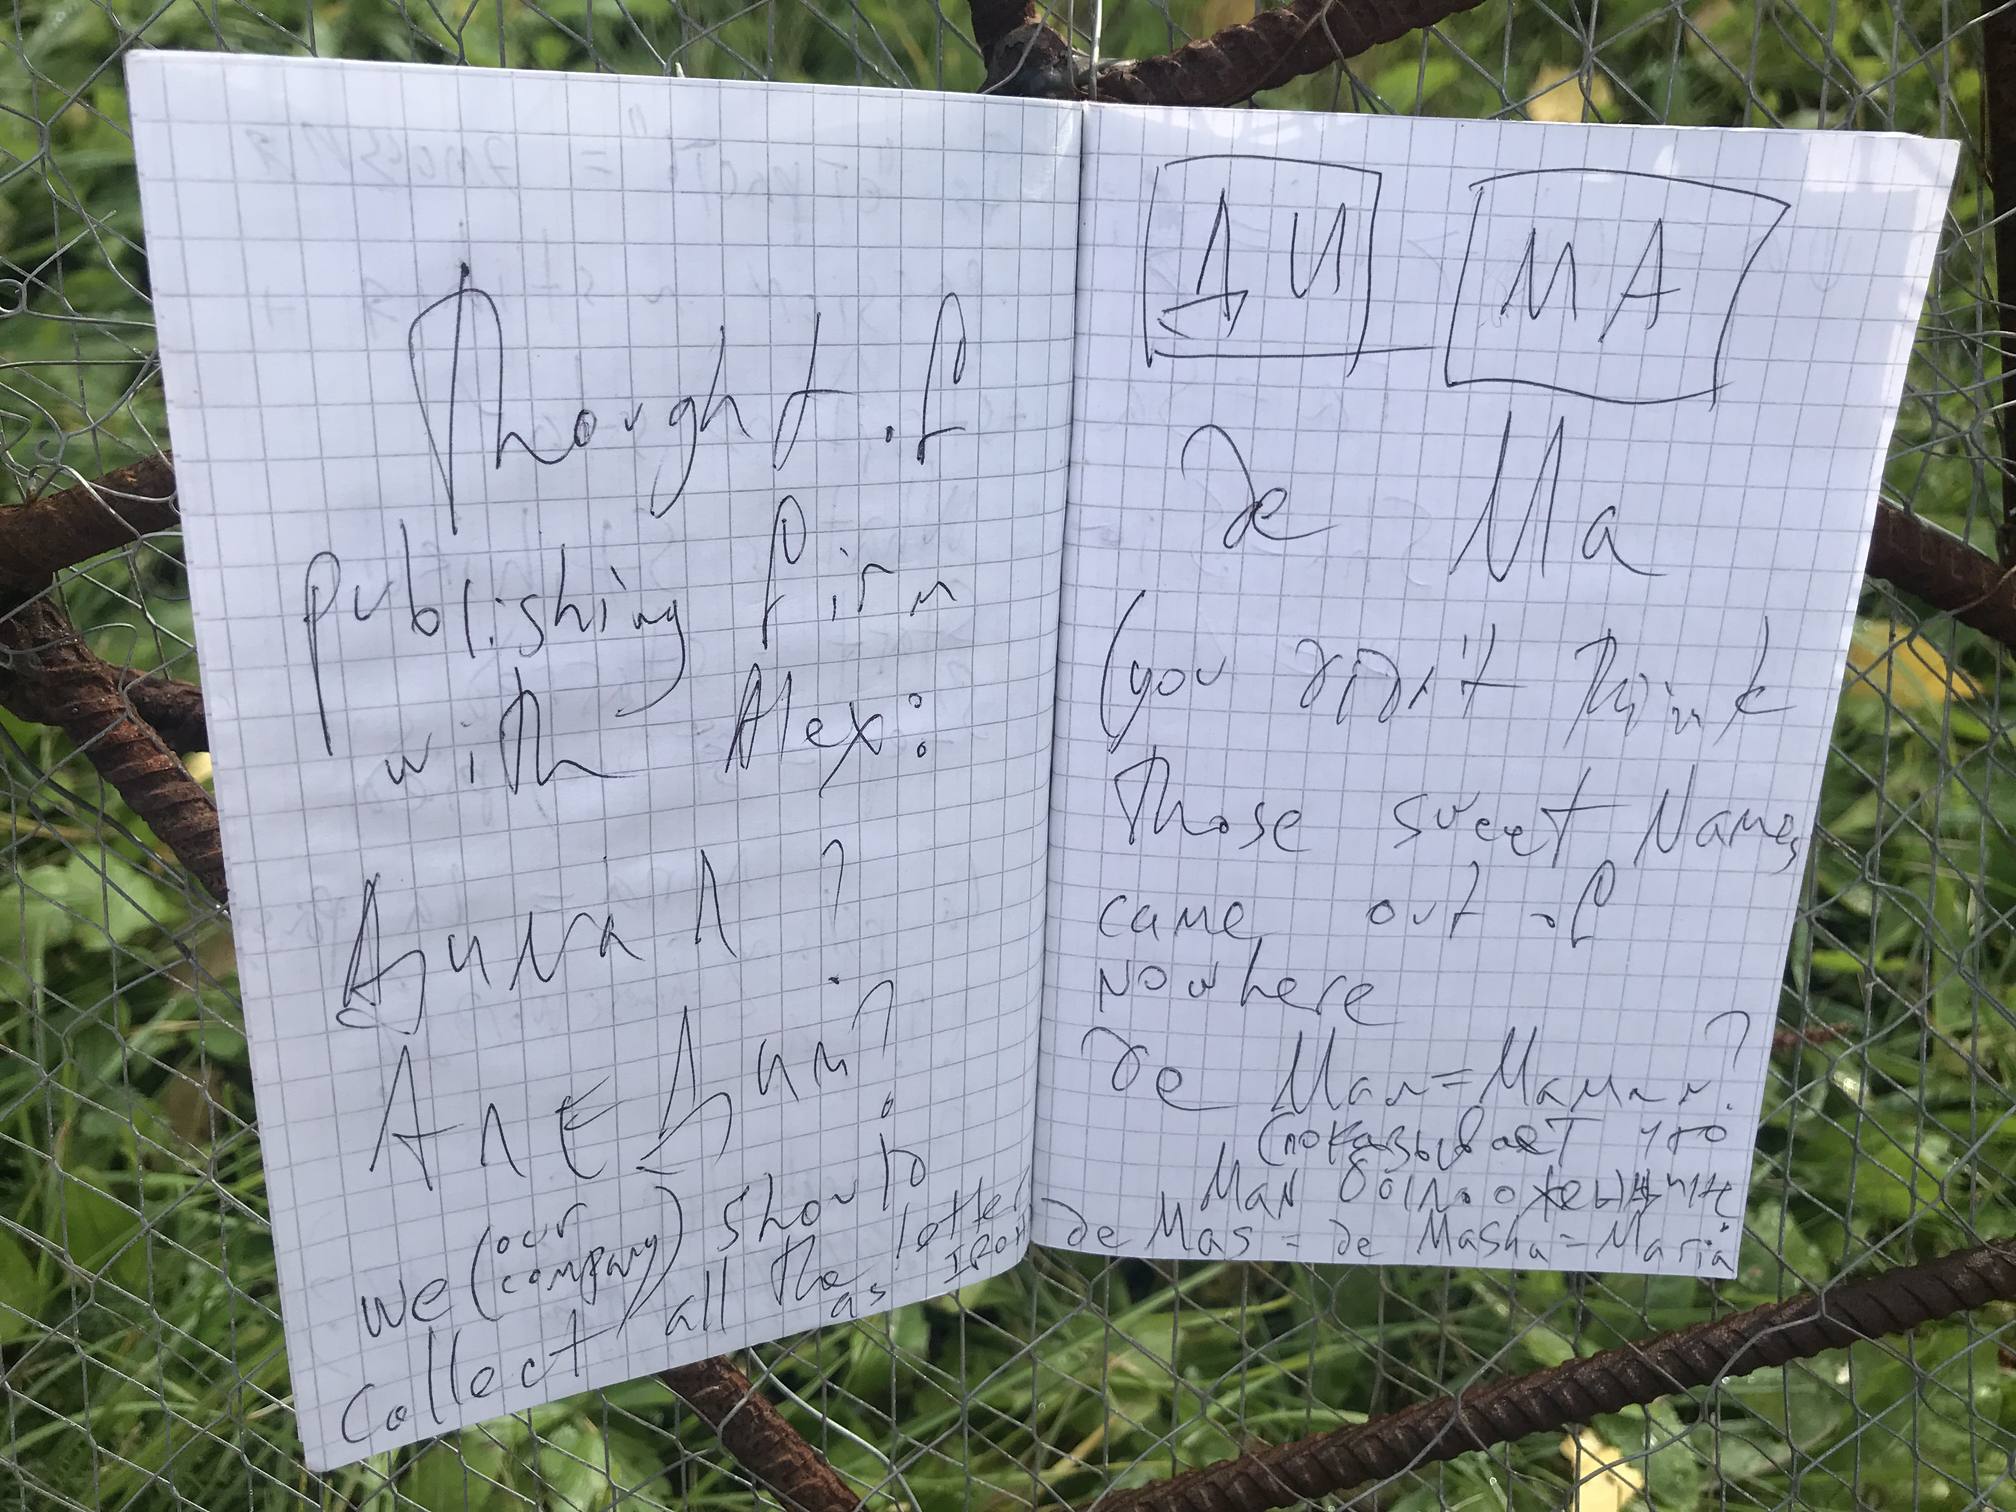 Thought of
publishing firm
with Alex:
Димал ?
АлЕДим?
we (our company) should
collect all the letter
as
ДИ МА
де Ма
(you didn't think
those sweet Names
came out of
nowhere
де Ман = Маmин?
(показывает что
Man
de Mas = de Masha = Maria